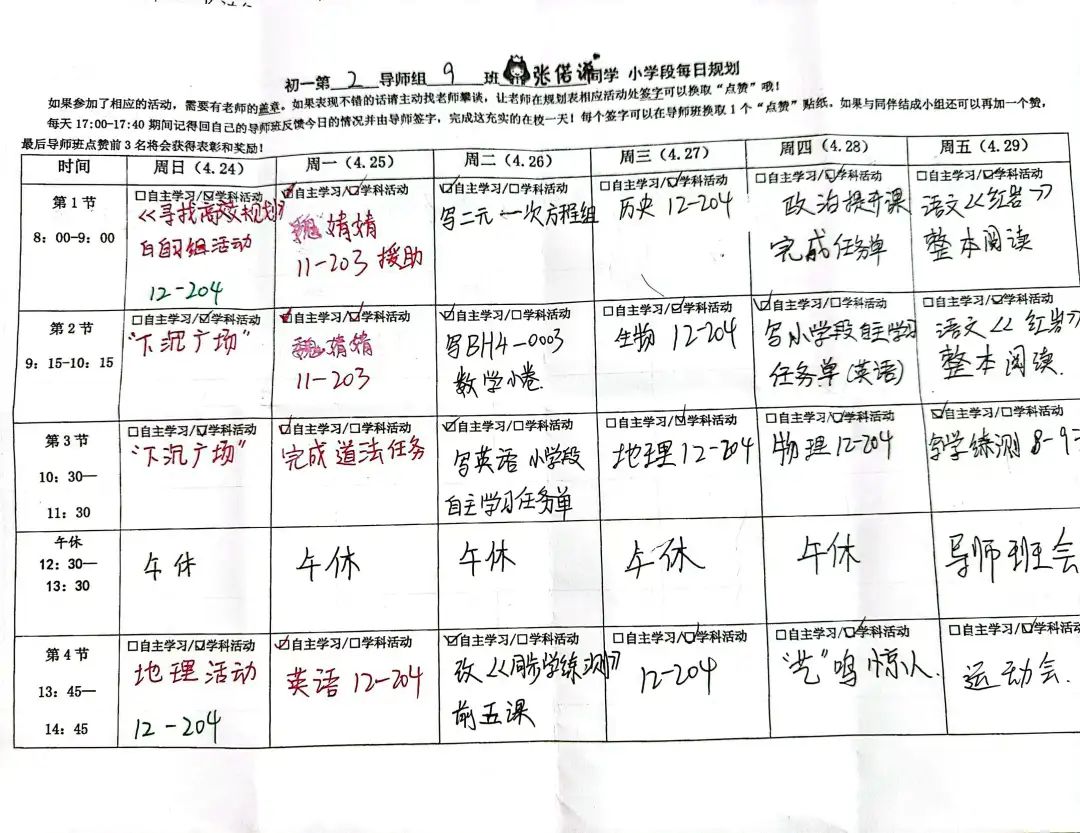 初一第 2 导师组 9 班 张偌 同学 小学段每日规划
如果参加了相应的活动，需要有老师的盖章。如果表现不错的话请主动找老师攀谈，让老师在规划表相应活动处签字可以换取“点赞”哦！
每天 17:00-17:40 期间记得回自己的导师班反馈今日的情况并由导师签字，完成这充实的在校一天！每个签字可以在导师班换取 1 个“点赞”贴纸。如果与同伴结成小组还可以再加一个赞，
最后导师班点赞前 3 名将会获得表彰和奖励！
时间 周日（4.24） 周一（4.25） 周二（4.26） 周三（4.27） 周四（4.28） 周五（4.29）
第 1 节
8：00-9：00
☑自主学习/☑学科活动
《寻找高效规划》
自习组活动
12-204
☑自主学习/☑学科活动
魏婧婧
11-203 援助
☑自主学习/□学科活动
写二元一次方程组
□自主学习/☑学科活动
历史 12-204
□自主学习/☑学科活动
政治提升课
完成任务单
□自主学习/☑学科活动
语文《红岩》
整本阅读
第 2 节
9：15-10：15
□自主学习/☑学科活动
“下沉广场”
☑自主学习/☑学科活动
魏婧婧
11-203
☑自主学习/□学科活动
写BH4-0003
数学小卷
□自主学习/☑学科活动
生物 12-204
☑自主学习/□学科活动
写小学段自主学习
任务单(英语)
□自主学习/☑学科活动
语文《红岩》
整本阅读.
第 3 节
10：30—
11：30
□自主学习/☑学科活动
“下沉广场”
☑自主学习/□学科活动
完成道法任务
☑自主学习/□学科活动
写英语小学段
自主学习任务单
□自主学习/☑学科活动
地理12-204
□自主学习/☑学科活动
物理12-204
☑自主学习/□学科活动
学练测 8-9
午休
12：30—
13：30
午休
午休
午休
午休
午休
导师班会
第 4 节
13：45—
14：45
□自主学习/☑学科活动
地理活动
12-204
☑自主学习/□学科活动
英语 12-204
☑自主学习/□学科活动
改《同步学练测》
前五课
□自主学习/☑学科活动
12-204
□自主学习/☑学科活动
“艺”鸣惊人.
□自主学习/☑学科活动
运动会.